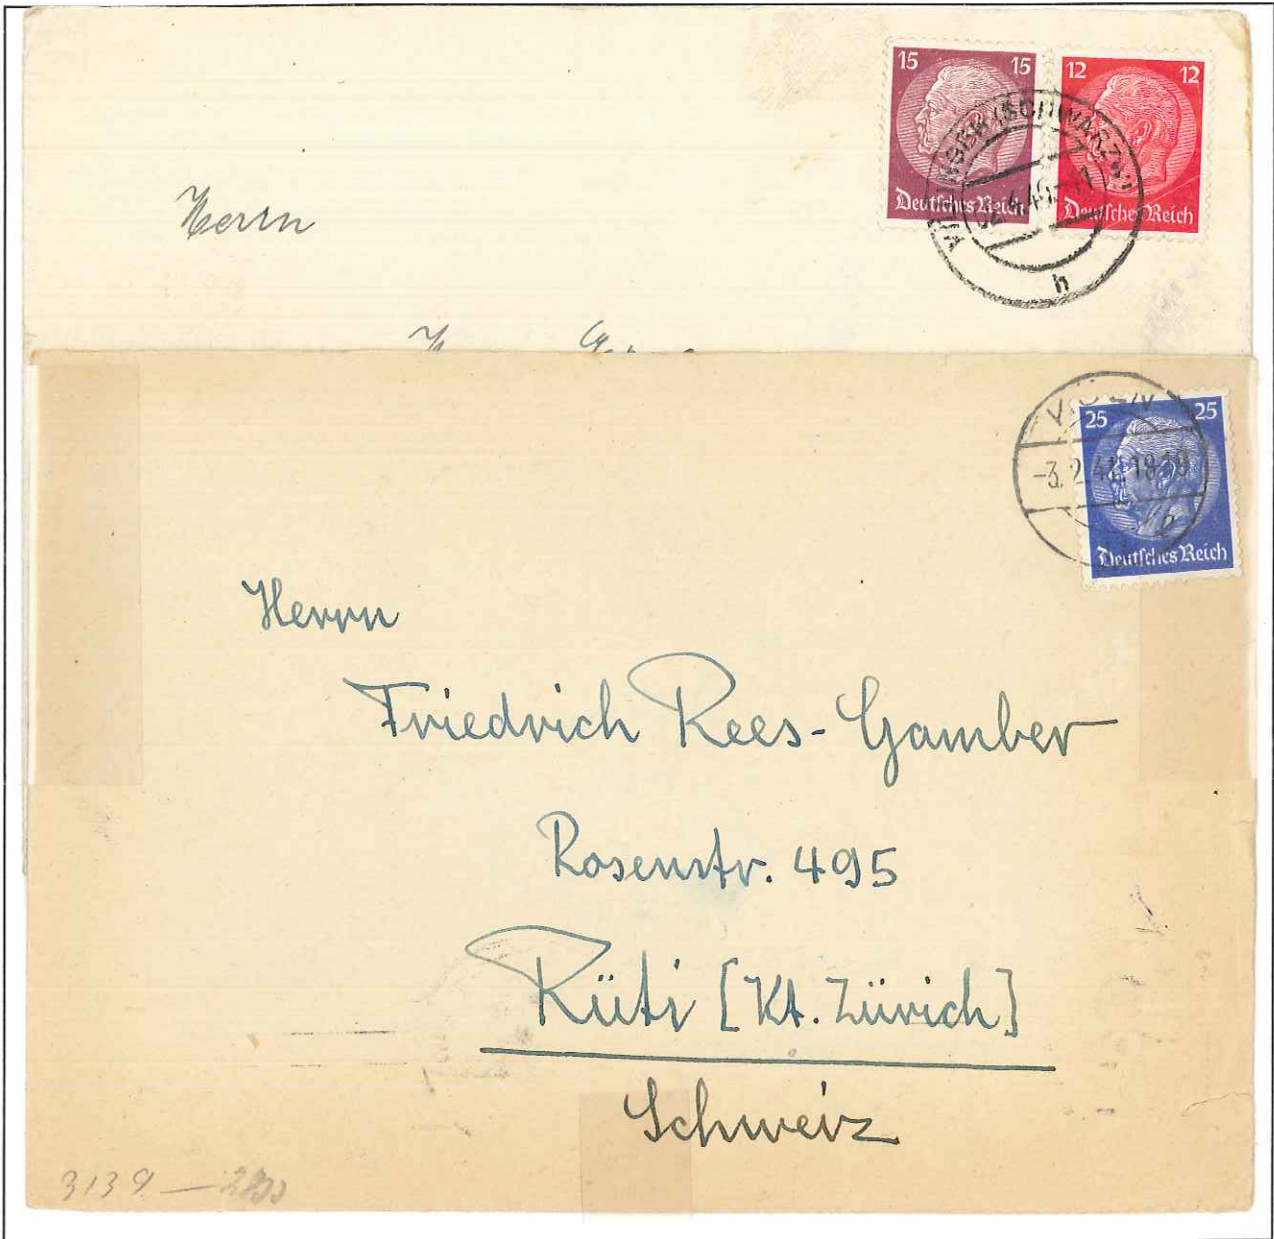 15 15
Deutsches Reich
12 12
Deutsches Reich
(SCHWARZW)
h
Herrn
25 25
Deutsches Reich
KÖLN
-3.2.41-18
Herrn
Friedrich Rees-Gamber
Rosenstr. 495
Rüti [Kt. Zürich]
Schweiz
3139 —